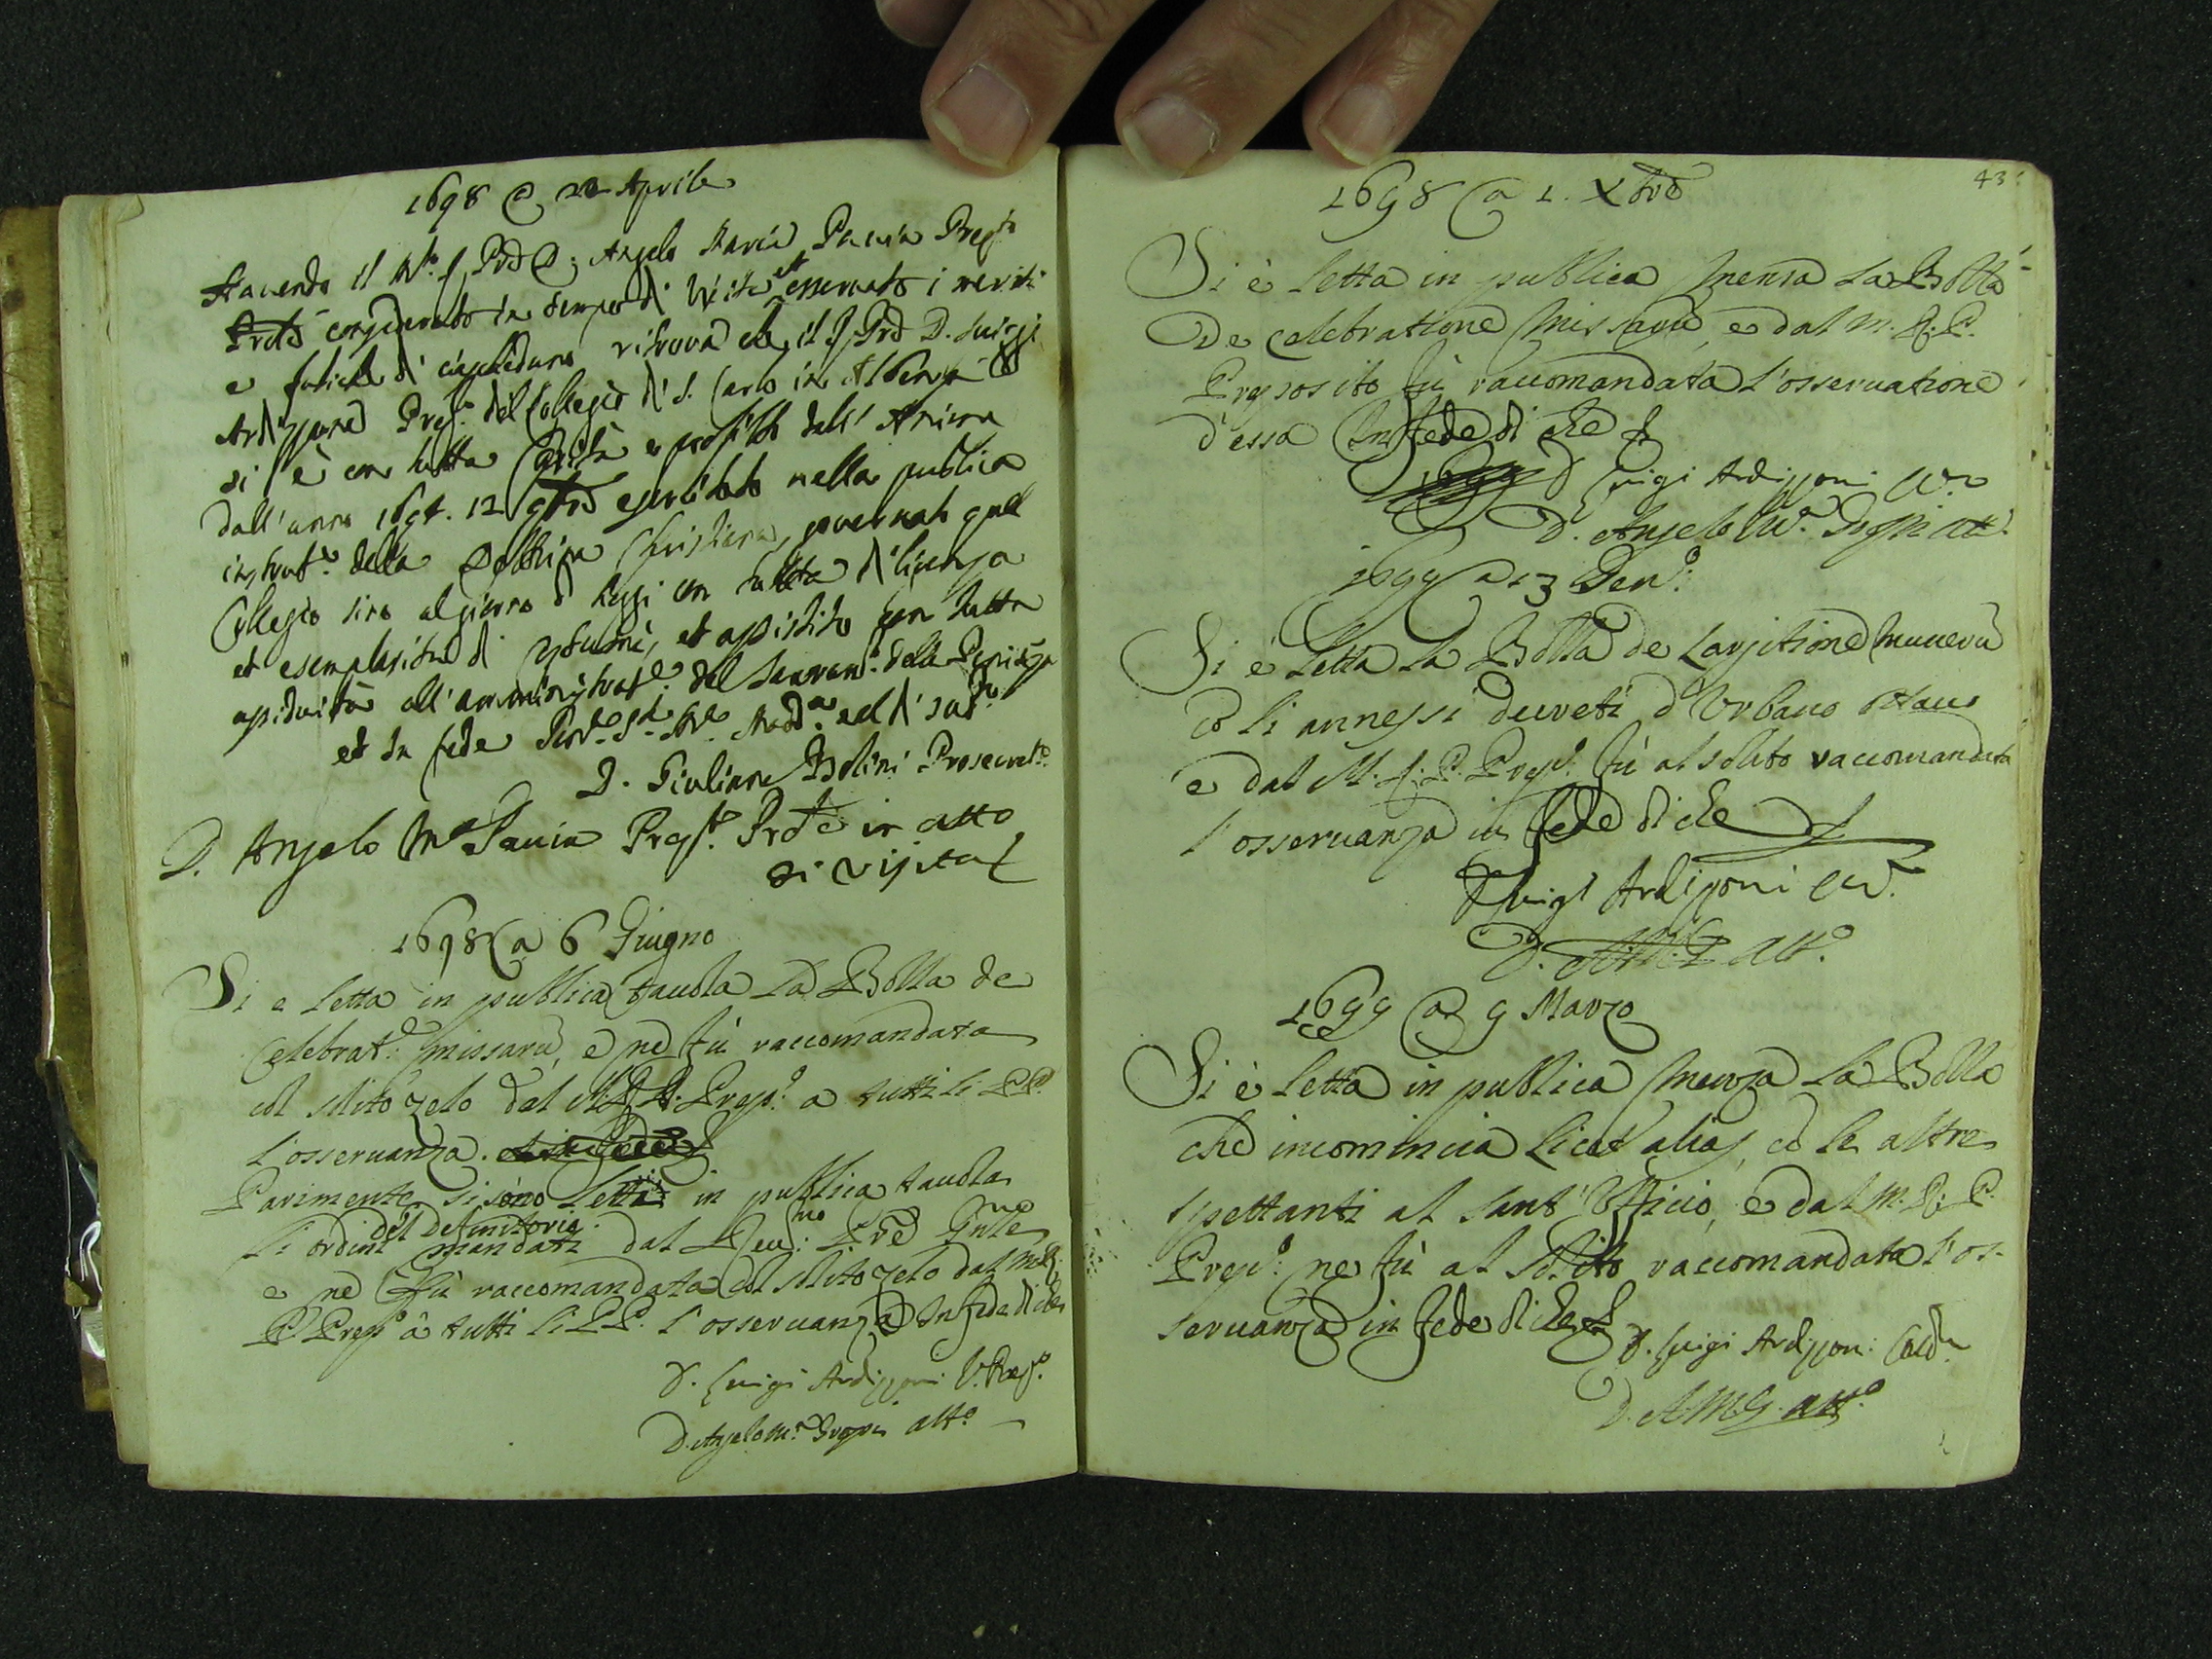 1698 a 22 Aprile
Havendo il M.to R. Prē D. Angelo Maria Pavia Prep.to
Prōle considerato in tempo di Visita et osservato i meriti
e fatiche di ritrova che il R. Prē D. Luigi
Ardizzone Prep.to del Collegio di S. Carlo in Albenga
si è con tutta Carità e profitto dell' Anime
dall'anno 1694. 12 9bre esercitato nella publica
instrut.e della Dottrina Christiana, governato quel
Collegio sino al giorno d'hoggi con tutta diligenza
et esemplarità di costumi, et assistito con tutta
assiduità all'amministrat.e del Sacram.to della Penitenza
et in fede
D. Giuliano Bolini Prosecret.o
D. Angelo M.a Pavia Prep.to Prōle in atto
di visita
1698 a 6 Giugno
Si e letta in publica tavola la Bolla de
Celebrat.e missarū, e ne fù raccomandata
col solito zelo dal M. R. P. Prep.o a tutti li PP.
l'osservanza.
Parimente si sono letti in publica tavola
del definitorio
li ordini mandati dal Reu.mo Prē Gnle
e ne fù raccomandata col solito zelo dal M. R.
P. Prep.o a tutti li PP. l'osservanza In fede di che
D. Luigi Ardizzoni V. Prep.o
D. Angelo M.a att.o
43
1698 a 1. Xbre
Si è letta in publica mensa la Bolla
De celebratione missarū, e dal M. R. P.
Preposito fù raccomandata l'osservatione
d'essa In fede di che
1699 D. Luigi Ardizzoni
D. Angelo M.a att.o
1699 a 13 Gen.o
Si è letta la Bolla de Largitione munerū
cō li annessi decreti d'Urbano Ottavo
e dal M. R. P. Prep.o fù al solito raccomandata
l'osservanza in fede di che
D. Luigi Ardizzoni
D. A.M.G. att.o
1699 a 9 Marzo
Si è letta in publica menza la Bolla
che incomincia Licet alias, cō le altre
spettanti al Sant'Officio, e dal M. R. P.
Prep.o ne fù al solito raccomandata l'os-
servanza in fede di che
D. Luigi Ardizzoni
D. A.M.G. att.o